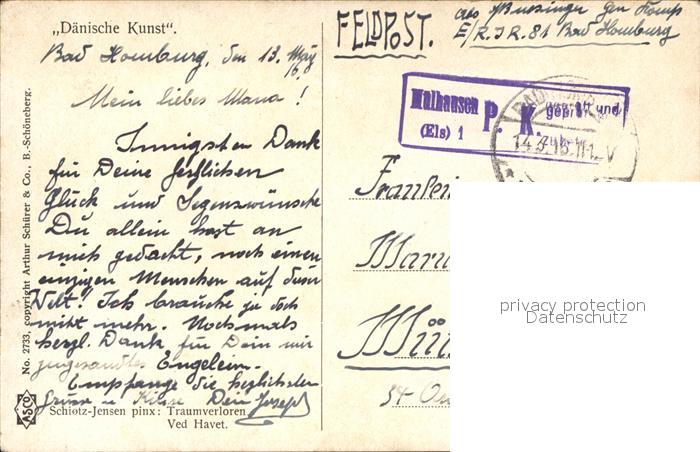 „Dänische Kunst“.
Bad Homburg, den 13. März
16.
Mein liebes Mana!
Innigsten Dank
für Deine herzlichen
Glück und Segenswünsche
Du allein hast an
mich gedacht, noch einen
einzigen Menschen auf dieser
Welt! Ich brauche ja doch
nicht mehr. Nochmals
herzl. Dank für Dein mir
zugesandtes Engelein.
Empfange die herzlichsten
Grüsse u. Küsse Dein Josef
Schiøtz-Jensen pinx: Traumverloren.
Ved Havet.
No. 2733, copyright Arthur Schürer & Co., B.-Schöneberg.
ASCO
FELDPOST.
E/R.I.R. 81 Bad Homburg
Mülhausen
(Els) 1
P. K.
und
14.3.16.
V
Fraulein
Mün
privacy protection
Datenschutz